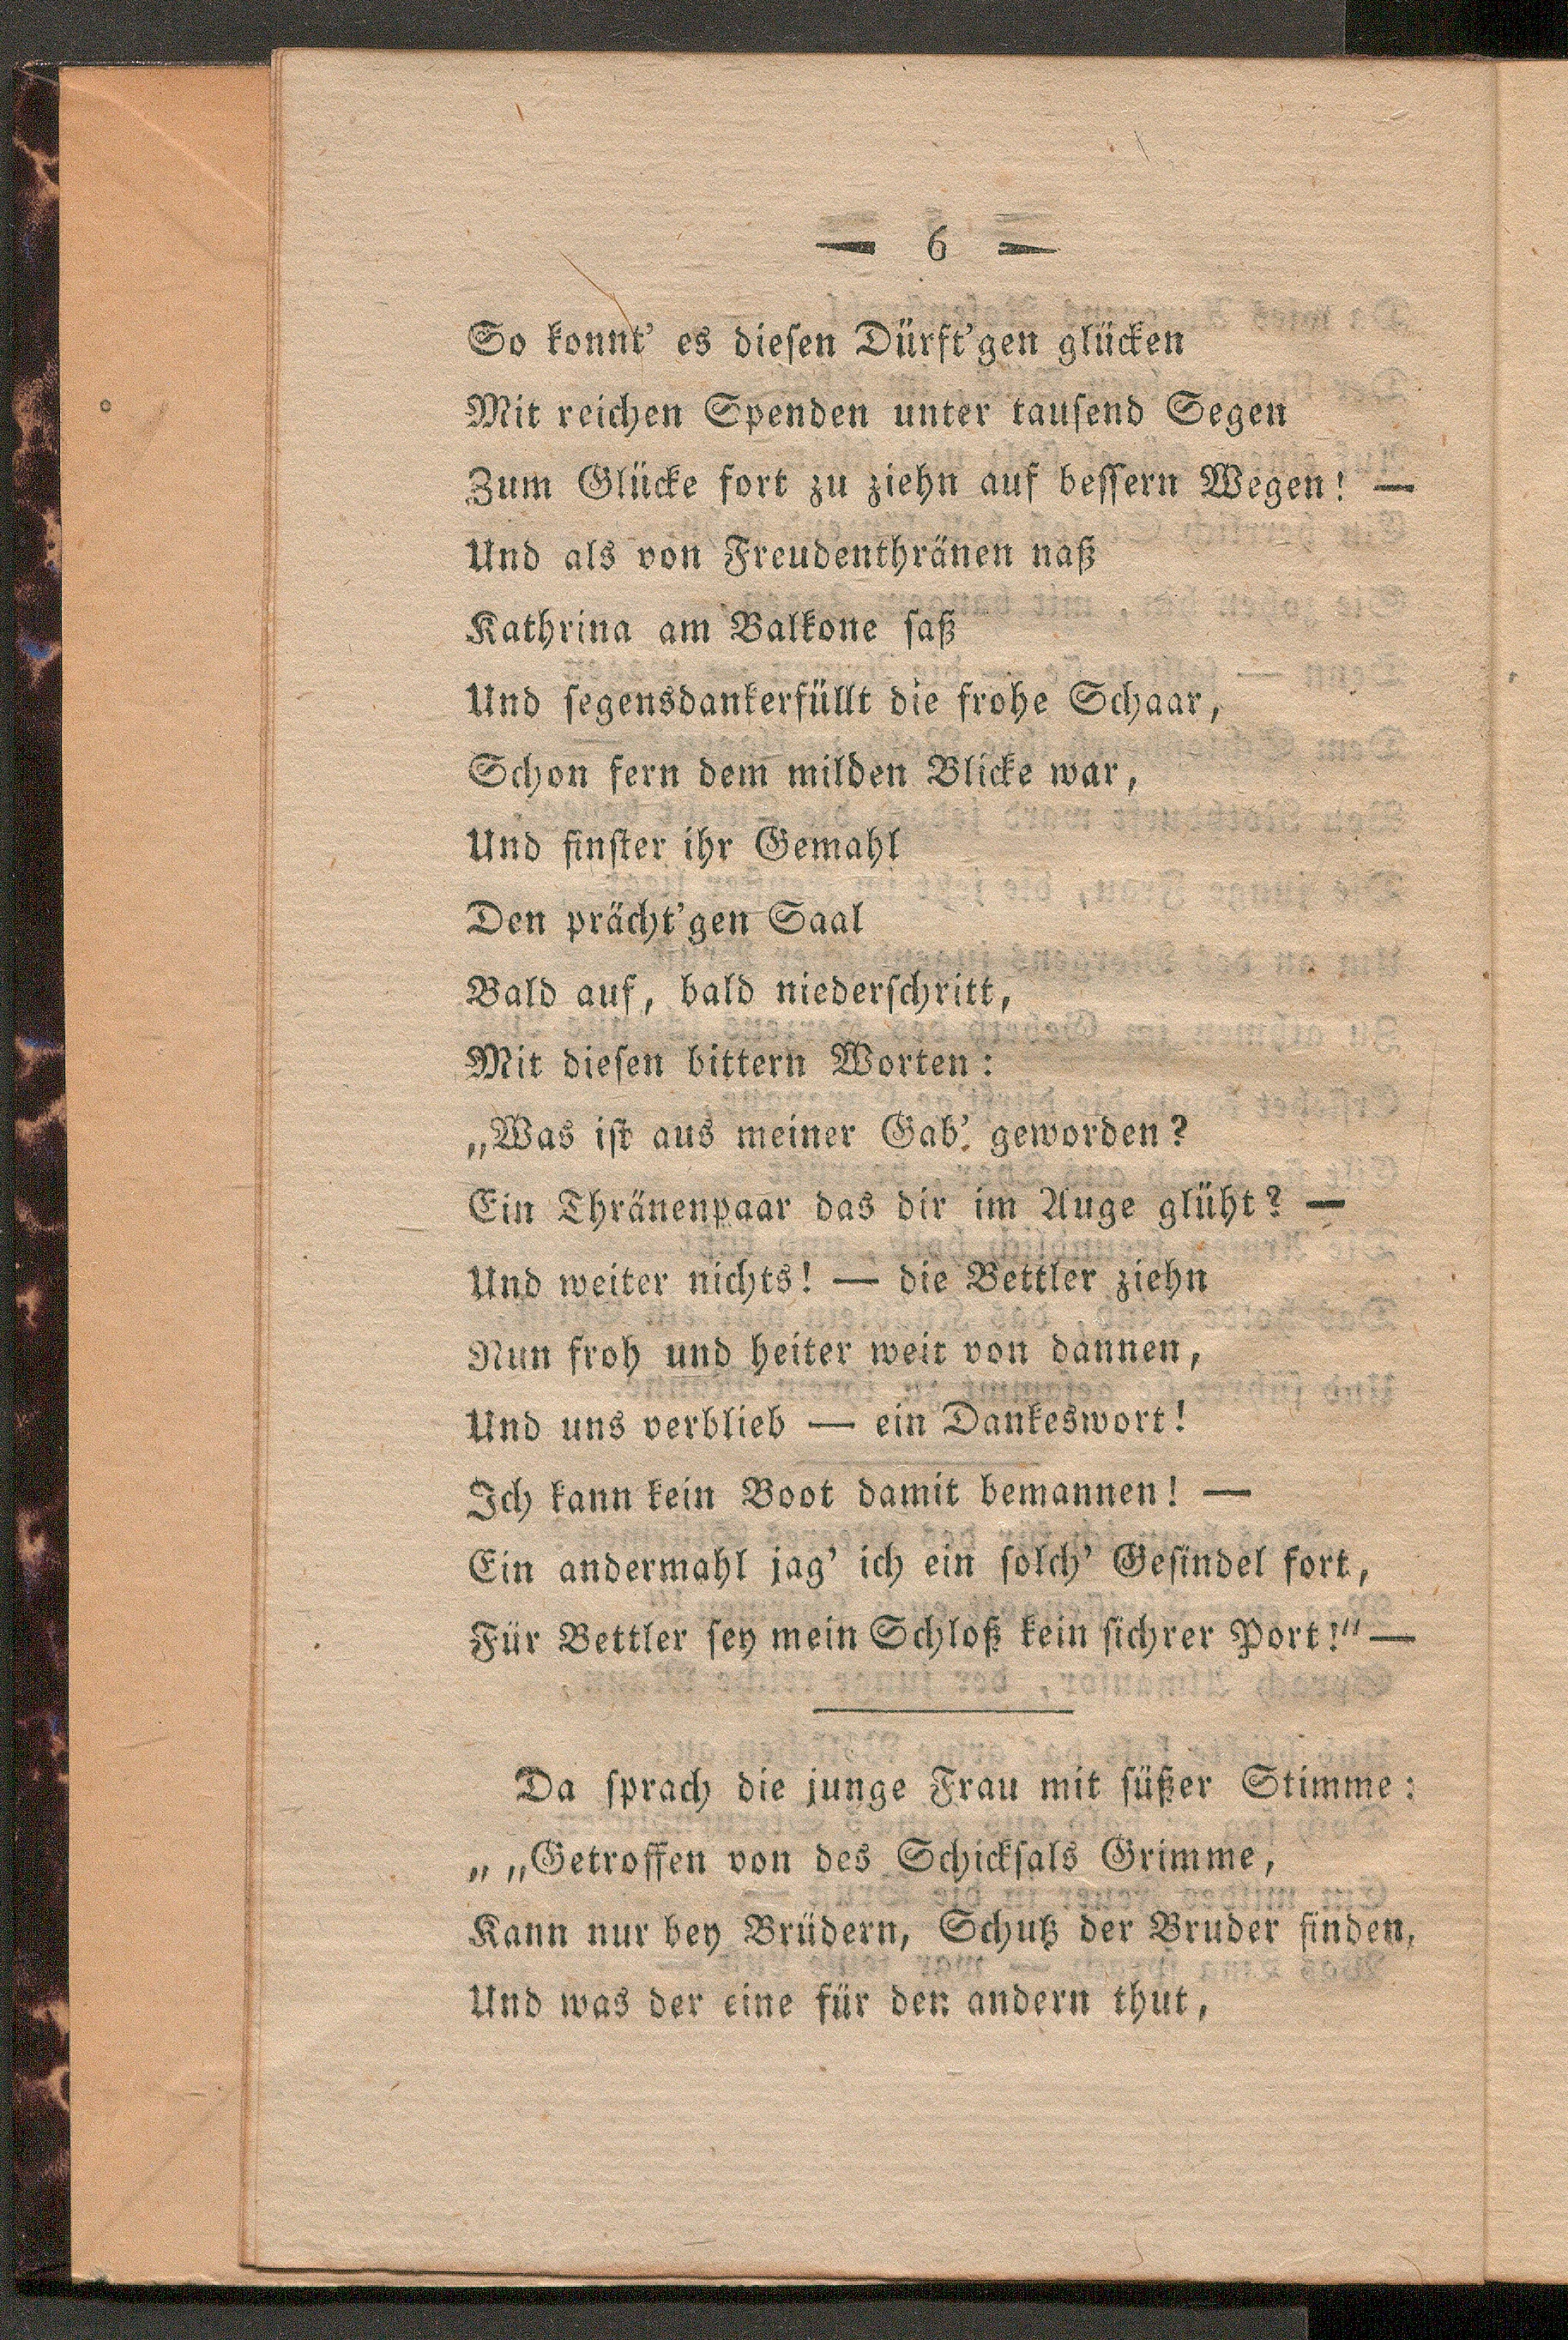 — 6 —
So konnt' es diesen Dürft'gen glücken
Mit reichen Spenden unter tausend Segen
Zum Glücke fort zu ziehn auf bessern Wegen! —
Und als von Freudenthränen naß
Kathrina am Balkone saß
Und segensdankerfüllt die frohe Schaar,
Schon fern dem milden Blicke war,
Und finster ihr Gemahl
Den prächt'gen Saal
Bald auf, bald niederschritt,
Mit diesen bittern Worten:
„Was ist aus meiner Gab'. geworden?
Ein Thränenpaar das dir im Auge glüht? —
Und weiter nichts! — die Bettler ziehn
Nun froh und heiter weit von dannen,
Und uns verblieb — ein Dankeswort!
Ich kann kein Boot damit bemannen! —
Ein andermahl jag' ich ein solch' Gesindel fort,
Für Bettler sey mein Schloß kein sichrer Port!“ —
Da sprach die junge Frau mit süßer Stimme:
„ „Getroffen von des Schicksals Grimme,
Kann nur bey Brüdern, Schutz der Bruder finden,
Und was der eine für den andern thut,